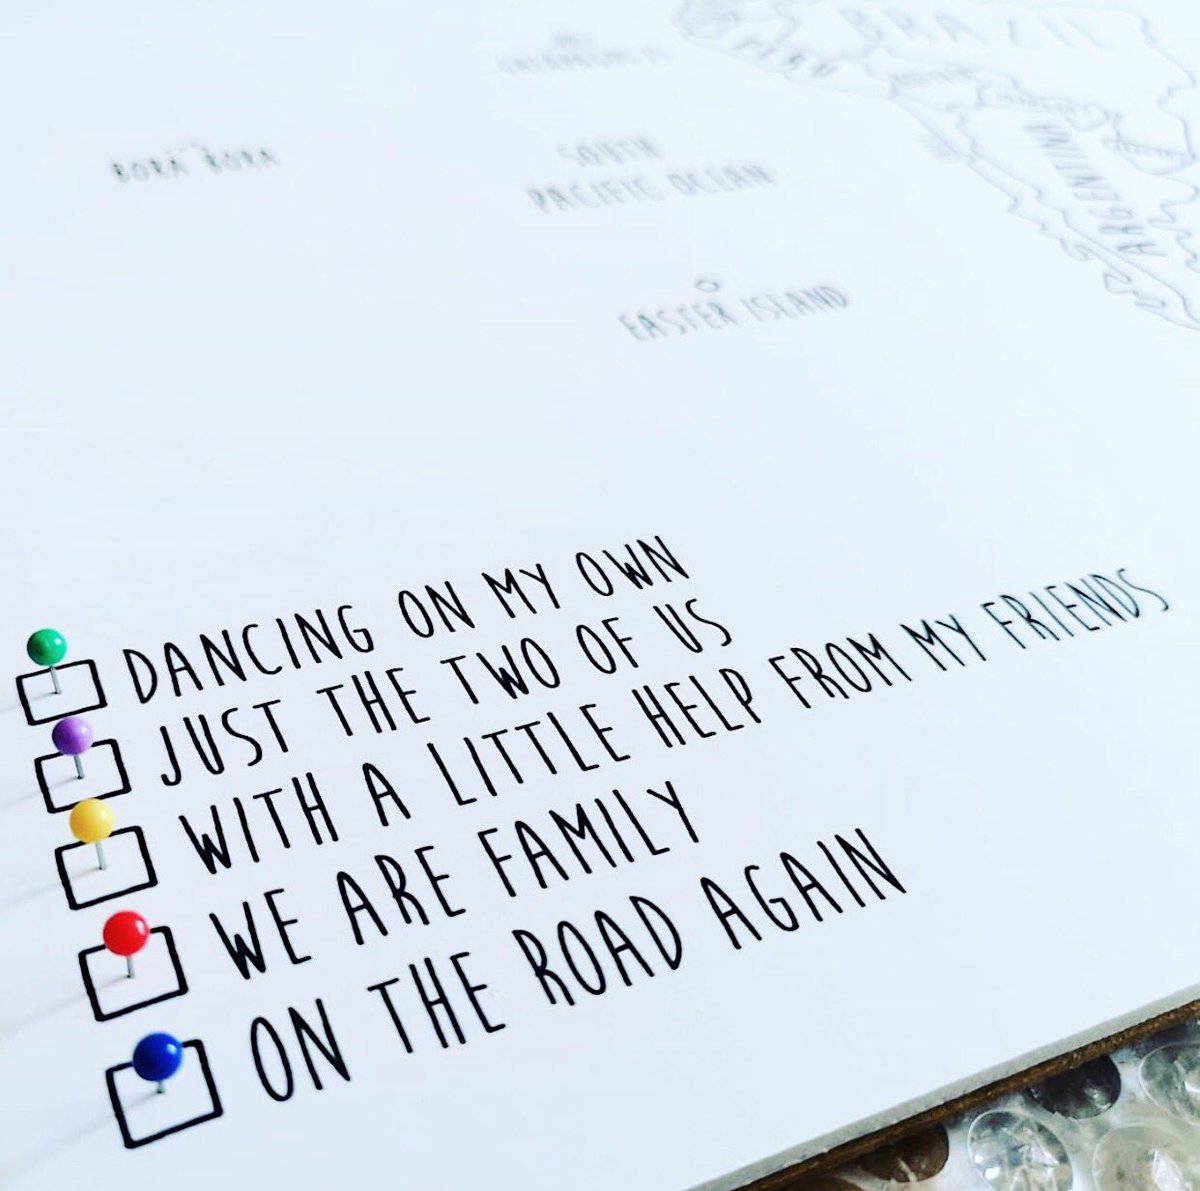 BRAZIL
PERU
BORA BORA
SOUTH
PACIFIC OCEAN
ARGENTINA
EASTER ISLAND
DANCING ON MY OWN
JUST THE TWO OF US
WITH A LITTLE HELP FROM MY FRIENDS
WE ARE FAMILY
ON THE ROAD AGAIN